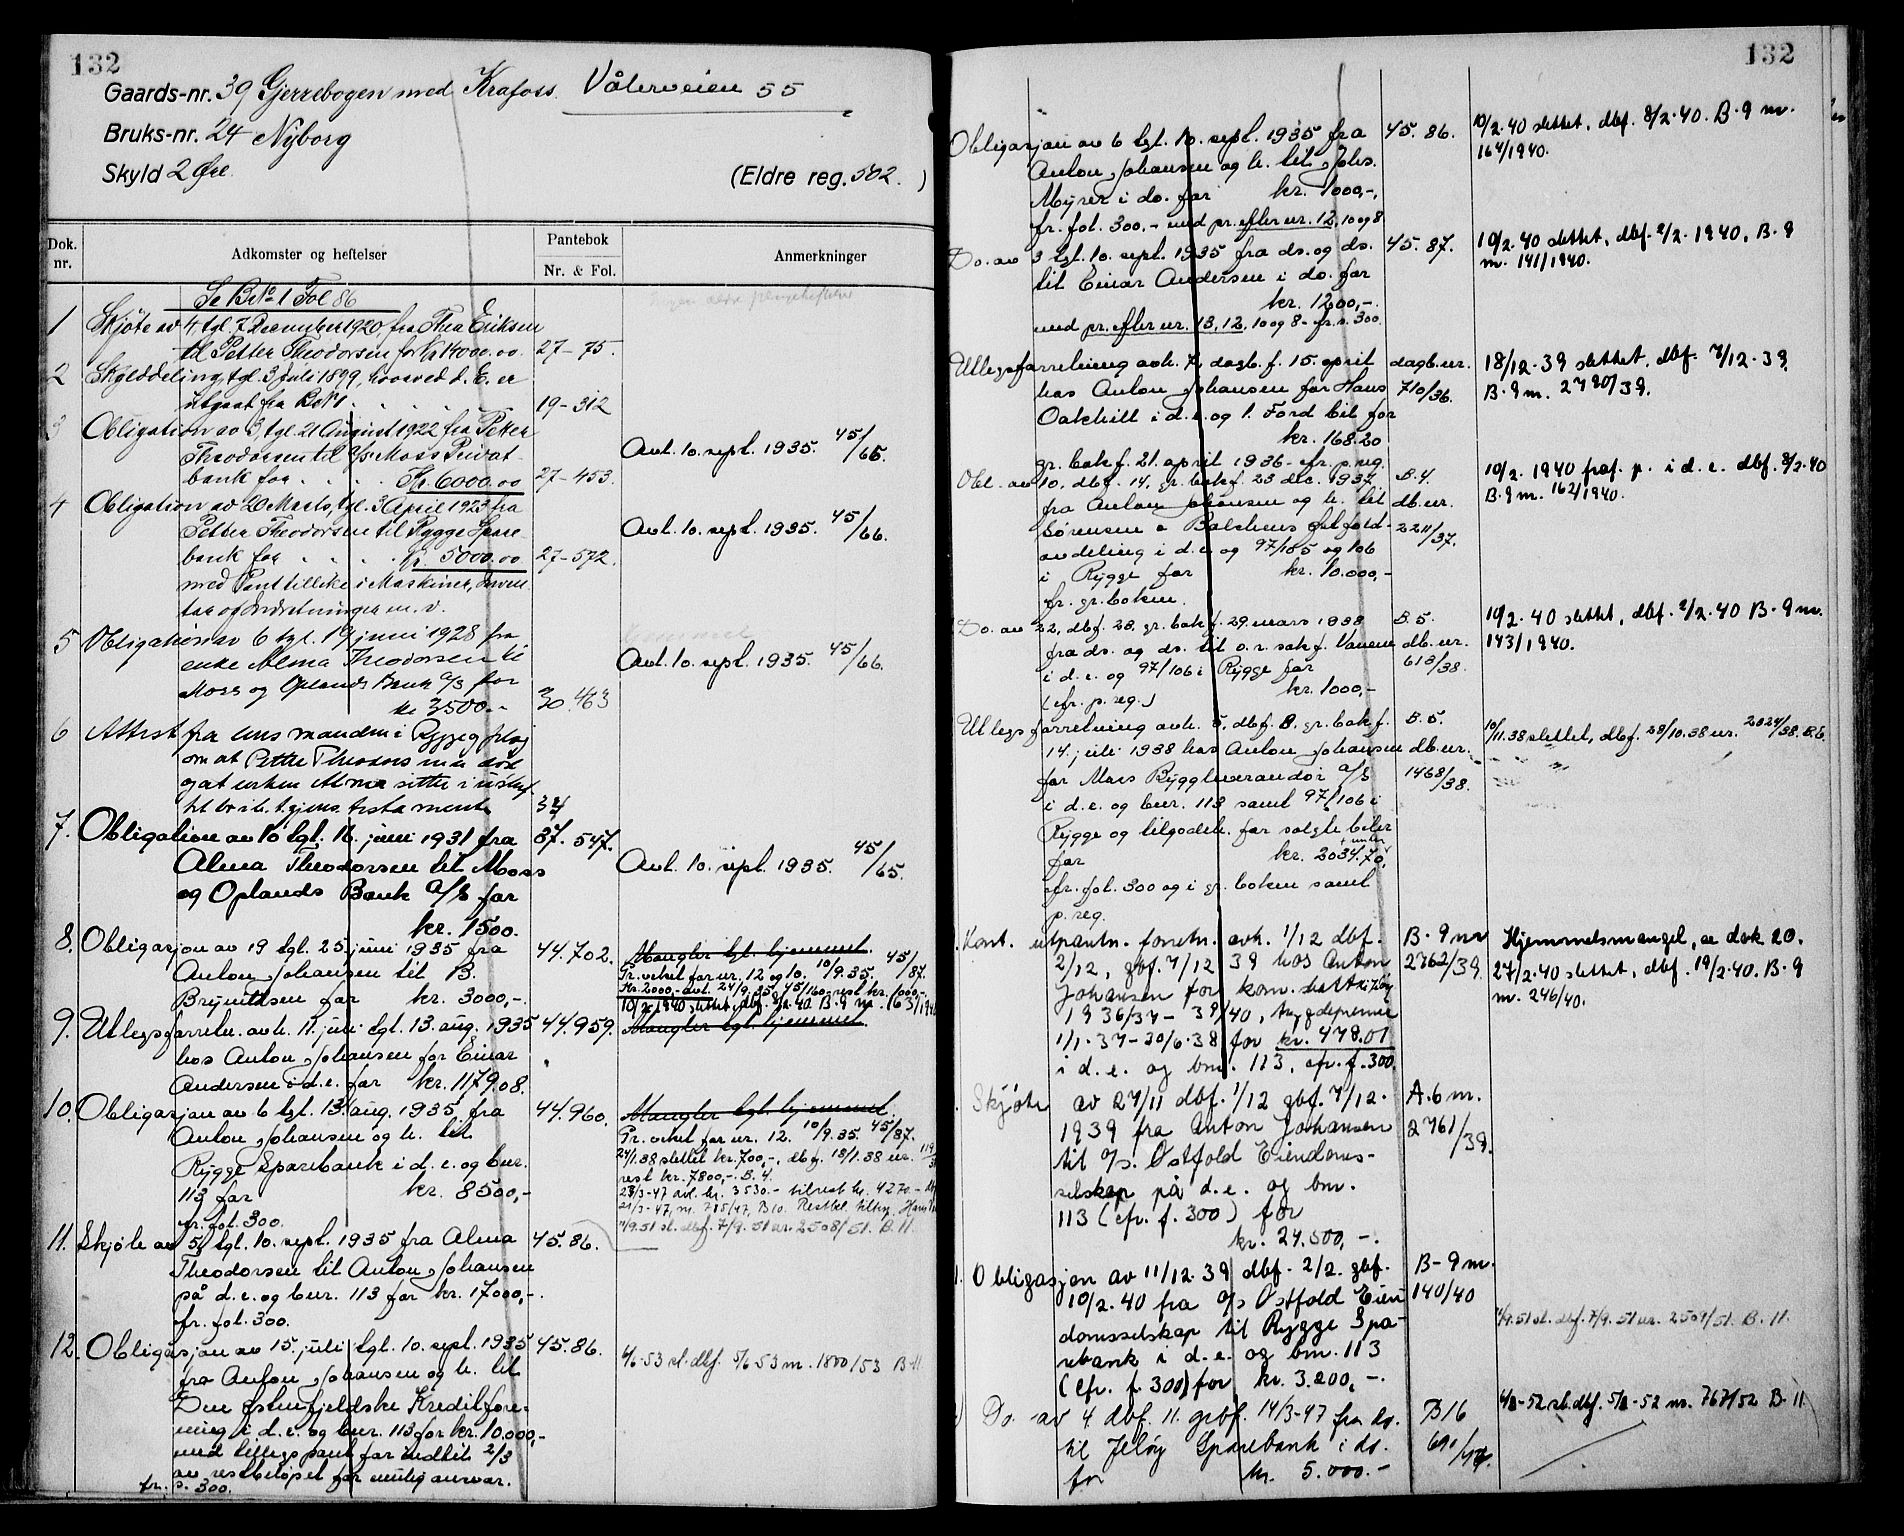 132
Gaards-nr. 39 Gjerrebogen med Krafoss. Vålerveien 55
Bruks-nr. 24 Nyborg
Skyld 2 Øre
(Eldre reg. 502. )
Dok. nr.
Adkomster og heftelser
Pantebok
Nr. & Fol.
Anmerkninger
Se Bk No 1 Fol 86
1 Skjøte av 4, tgl. 7 December 1920 fra Thea Eriksen
til Petter Theodorsen for Kr 14000.00. 27-75.
2 Skylddeling, tgl. 3 Juli 1899, hvorved d. E. er
utgaat fra Bk No 1 . . . . 19-312
3 Obligation av 3, tgl. 21 August 1922 fra Petter
Theodorsen til A/S Moss Privat-
bank for . . . . Kr. 6000.00 27-453
Avl. 10. sept. 1935. 45/65.
4 Obligation av 20 Marts, tgl. 3 April 1923 fra
Petter Theodorsen til Rygge Spare-
bank for . . . . Kr. 5000.00 27-572.
Avl. 10. sept. 1935. 45/66.
med Pant tillike i Maskiner, Inven-
tar og Indretninger m. v.
5 Obligation av 6 tgl. 19 juni 1928 fra
enke Alma Theodorsen til
Moss og Oplands Bank A/S for
kr 3500.- 30.463
Avl. 10. sept. 1935. 45/66.
6 Attest fra lensmanden i Rygge
om at Petter Theodorsen er død
og at enken Alma sitter i uskiftet
bo i h. t. gjens. testamente
7. Obligation av 10 tgl. 16. juni 1931 fra 37. 547.
Alma Theodorsen til Moss
og Oplands Bank A/S for
kr. 1500.
Avl. 10. sept. 1935. 45/65.
8. Obligasjon av 19 tgl. 25 juni 1935 fra 44.702.
Anton Johansen til B.
Brynildsen for kr. 3000,-.
Mangler tgl. hjemmel. 45/87.
Pr. vikel for nr. 12 og 10. 10/9.35.
Kr. 2000,- avl. 24/9.35, 45/160 rest kr. 1000,-.
10/2.1940 slettet, dbf. 8/2.40 B. 9 m. 163/1940
9. Utlegsforretn. avh. 11. juli tgl. 13. aug. 1935 44.959.
hos Anton Johansen for Einar
Andersen i d.e. for kr. 1179.08.
Mangler tgl. hjemmel
10. Obligasjon av 6 tgl. 13. aug. 1935 fra 44.960.
Anton Johansen og h. til
Rygge Sparebank i d.e. og bnr.
113 for kr. 8500,-
fr. fol. 300.
Mangler tgl. hjemmel.
Pr. vikel for nr. 12. 10/9.35. 45/87.
24/1.38 slettet kr. 700,-, dbf. 18/1.38 nr. 119/38
rest kr. 7800,-. B. 4.
28/3-47 avl. kr. 3530.- tilrest kr. 4270.-
21/3-47, nr. 785/47, B10.
7/9.51 sl. dbf. 7/9.51 nr. 2508/51. B. 11.
11. Skjøte av 5, tgl. 10. sept. 1935 fra Alma 45.86.
Theodorsen til Anton Johansen
på d.e. og bnr. 113 for kr. 17000,-.
fr. fol. 300.
12. Obligasjon av 15. juli tgl. 10. sept. 1935 45.86.
fra Anton Johansen og h. til
Den østenfjeldske Kreditfore-
ning i d.e. og bnr. 113 for kr. 10.000,-
med tillegspant for indtil 2/3
av restbeløpet for mulig ansvar.
fr. s. 300.
4/6-53 sl. dbf. 5/6-53 nr. 1800/53 B. 11
132
Obligasjon av 6 tgl. 10. sept. 1935 fra 45. 86.
Anton Johansen og h. til Johs.
Myrer i do. for kr. 1000,-,
fr. fol. 300.- med pr. efter nr. 12, 10 og 8
10/2.40 slettet, dbf. 8/2.40. B. 9 m.
164/1940.
Do. av 3 tgl. 10. sept. 1935 fra ds. og ds. 45. 87.
til Einar Andersen i do. for
kr. 1200,-.
med pr. efter nr. 13, 12, 10 og 8- fr. s. 300.
10/2.40 slettet, dbf. 2/2.1940, B. 9
m. 141/1940.
Utlegsforretning avh. 7, dagb.f. 15. april dagb. nr.
hos Anton Johansen for Hans 710/36.
Oakhill i d.e. og 1. Ford bil for
kr. 168.20
gr. bok f. 21. april 1936- cfr. p. reg.
18/12-39 slettet, dbf. 7/12-39
B. 9 m. 2790/39.
Obl. av 10, dbf. 14, gr. bok f. 23 dec. 1937 B. 4.
fra Anton Johansen og h. til db. nr.
Sørensen & Balchens Østfold- 2211/37.
avdeling i d.e. og 97/105 og 106
i Rygge for kr. 10.000,-
fr. gr. boken.
10/2. 1940 fraf. p. i d. e. dbf. 8/2.40
B. 9 m. 162/1940.
Do. av 22, dbf. 23, gr. bok f. 29. mars 1938 B. 5.
fra ds. og ds. til o.r. sakf. Vanem db. nr.
i d.e. og 97/106 i Rygge for 613/38.
kr. 1000,-
(cfr. p. reg.)
10/2.40 slettet, dbf. 2/2.40 B. 9 m.
143/1940.
Utlegsforretning avh. 5, dbf. 8. gr. bok f. B. 5.
14. juli 1938 hos Anton Johansen db. nr.
for Moss Byggleverandør A/S 1468/38.
i d.e. og bnr. 113 samt 97/106 i
Rygge og tilgodeh. for solgte biler
for kr. 2034.70,
cfr. fol. 300 og i gr. boken samt
p. reg.
10/11.38 slettet, dbf. 28/10.38 nr. 2024/38. B. 6.
Kont. utpantn. forretn. avh. 1/12 dbf. B. 9 m
2/12, gbf. 7/12 39 hos Anton 2762/39.
Johansen for kom. skatt i Rygge
1936/37 - 39/40, trygdepremie
1/1.37 - 30/6.38 for kr. 478.01
i d. e. og bnr. 113, cfr. f. 300.
Hjemmelsmangel, se dok 20.
27/2.40 slettet, dbf. 19/2.40. B. 9
m. 246/40.
Skjøte av 27/11 dbf. 1/12 gbf. 7/12. A. 6 m.
1939 fra Anton Johansen 2761/39.
til A/S. Østfold Eiendoms-
selskap på d. e. og bnr.
113 (cfr. f. 300) for
kr. 24.500,-.
Obligasjon av 11/12.39 dbf. 2/2. gbf. B- 9 m.
10/2.40 fra A/S Østfold Eien- 140/40
domsselskap til Rygge Spa-
rebank i d. e. og bnr. 113
(cfr. f. 300) for kr. 3.200,-.
7/9.51 sl. dbf. 7/9.51 nr. 2509/51. B. 11.
Do. av 4 dbf. 11. grbf. 14/3-47 fra ds. B16
til Jeløy Sparebank i ds. 691/47.
for kr. 5.000.-
4/3-52 sl. dbf. 5/3-52 nr. 767/52 B. 11